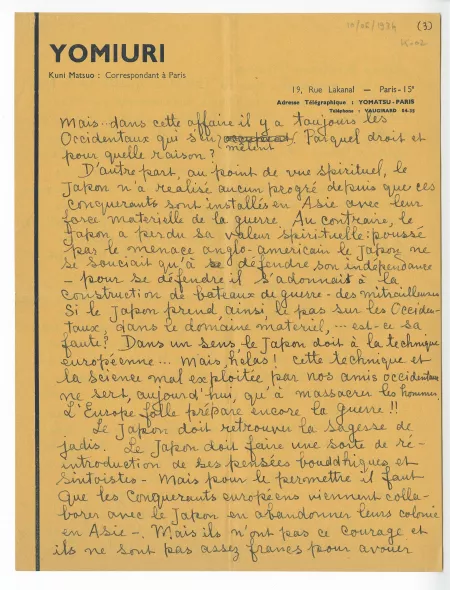 10/05/1934 (3)
YOMIURI
Kuni Matsuo : Correspondant à Paris
19, Rue Lakanal — Paris-15e
Adresse Télégraphique : YOMATSU-PARIS
Téléphone : VAUGIRARD 04-39
Mais dans cette affaire il y a toujours les
Occidentaux qui s'en mêlent. Par quel droit et
pour quelle raison ?
D'autre part, au point de vue spirituel, le
Japon n'a réalisé aucun progré depuis que ces
conquerants sont installés en Asie avec leur
force materielle de la guerre. Au contraire, le
Japon a perdu sa valeur spirituelle : poussé
pas le menace anglo-americain le Japon ne
se souciait qu'à se défendre son indépendance
– pour se défendre il s'adonnait à la
construction de bateaux de guerre - des mitrailleuses
Si le Japon prend, ainsi le pas sur les Occiden-
taux, dans le domaine materiel, ... est-ce sa
faute ? Dans un sens le Japon doit à la technique
européenne ... Mais, hélas ! cette technique et
la science mal exploitée par nos amis occidentaux
ne sert, aujourd'hui, qu'à massacrer les hommes.
L'Europe folle prépare encore la guerre !!
Le Japon doit retrouver la sagesse de
jadis. Le Japon doit faire une sorte de ré-
introduction de ses pensées bouddhiques et
sintoistes - Mais pour le permettre il faut
que les conquerants européens viennent colla-
borer avec le Japon en abandonner leurs colonie
en Asie –. Mais ils n'ont pas ce courage et
ils ne sont pas assez francs pour avouer